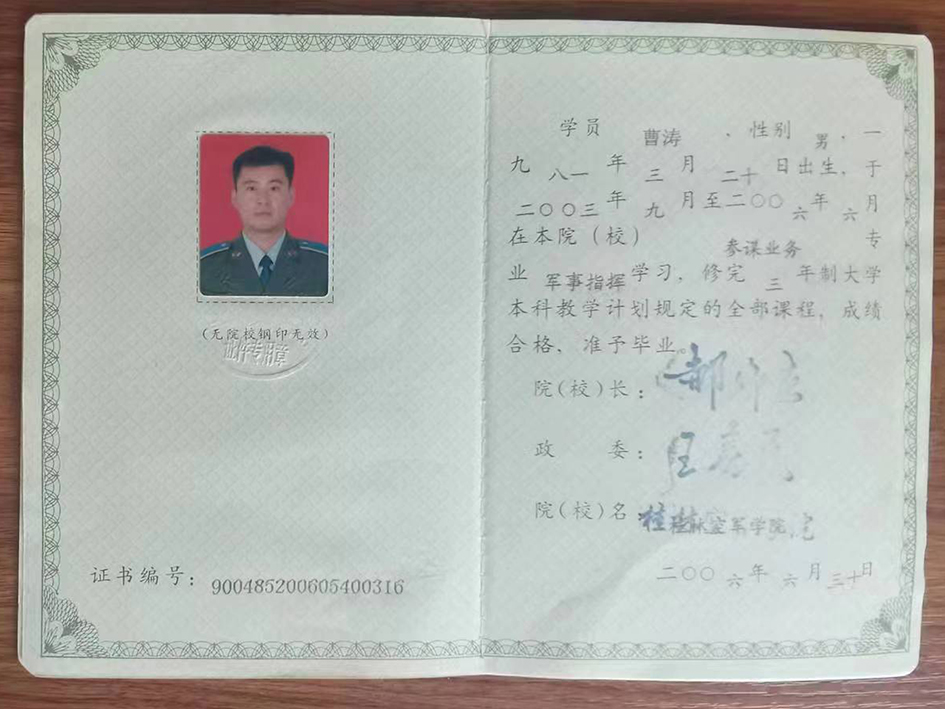 (无院校钢印无效)
证件专用章
证书编号：900485200605400316
学员 曹涛 、性别 男，一
九八一年三月二十日出生，于
二〇〇三年九月至二〇〇六年六月
在本院（校） 参谋业务 专
业 军事指挥 学习，修完 三 年制大学
本科教学计划规定的全部课程，成绩
合格，准予毕业。
院(校)长：郝
政 委：
院(校)名 桂林空军学院
二〇〇六年六月三十日